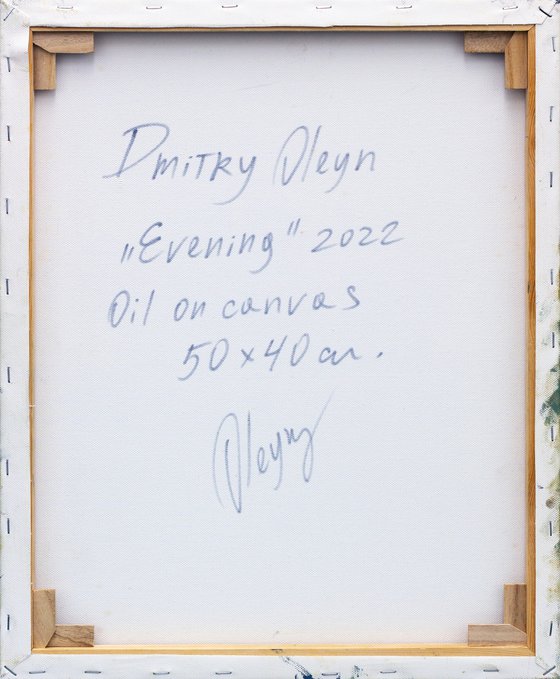 Dmitry Oleyn
„Evening" 2022
Oil on canvas
50 x 40 cm.
Oleyn